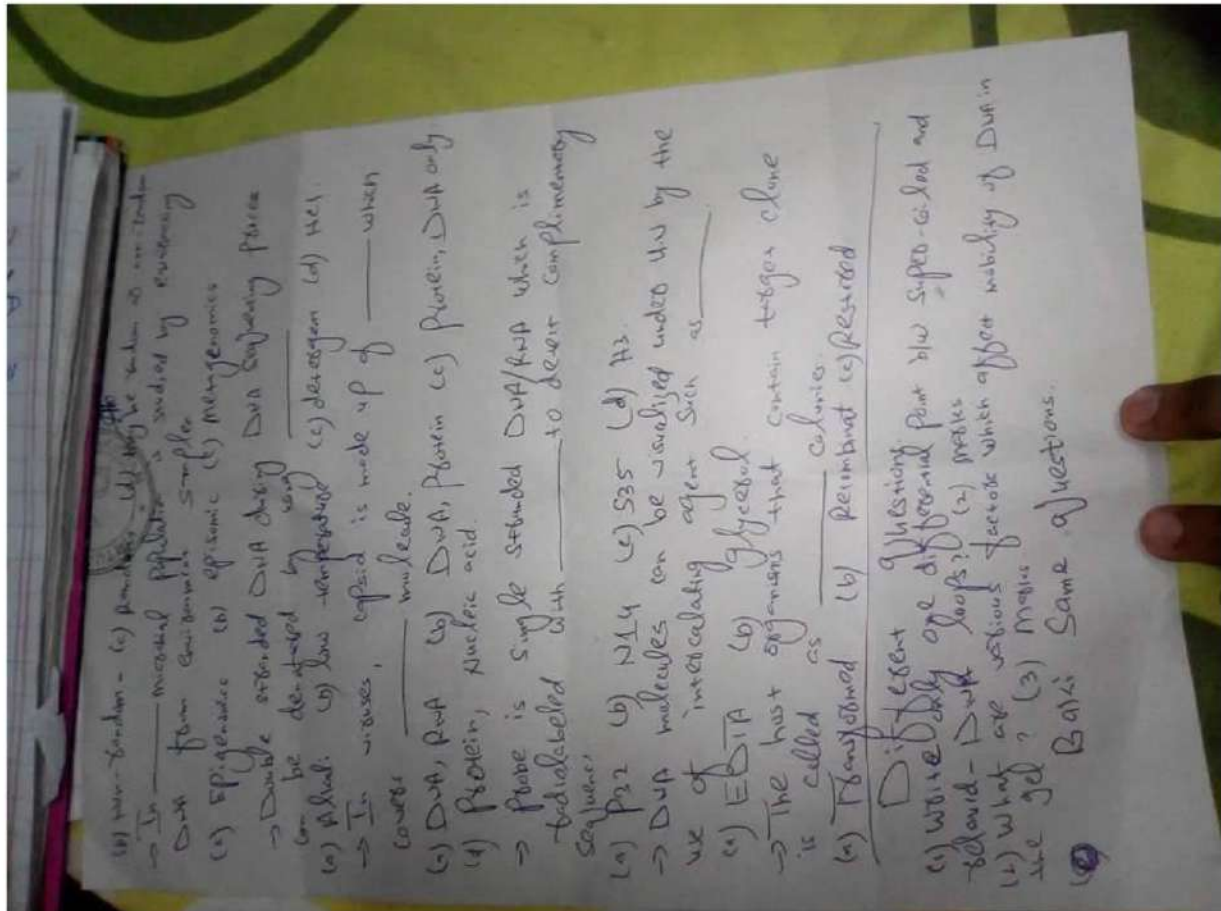 (b) Non-random - (c) random (d) may be random or non-random
→ In ______ microbial population is studied by extracting
DNA from environmental samples
(a) Epigenomics (b) episomic (c) metagenomics
→ Double stranded DNA during DNA sequencing process
can be denatured by using ______
(a) Alkali (b) low temperature (c) detergen (d) HCl.
→ In viruses, capsid is made up of ______ when
covers ______ molecule.
(a) DNA, RNA (b) DNA, Protein (c) Protein, DNA only
(d) Protein, Nucleic acid.
→ Probe is single stranded DNA/RNA which is
radiolabeled with ______ to detect complimentary
sequence.
(a) P32 (b) N14 (c) S35 (d) H3.
→ DNA molecules can be visualized under UV by the
use of intercalating agent such as ______
(a) EDTA (b) glycerol.
→ The host organisms that contain trager clone
is called as ______ colonies.
(a) Transformed (b) Recombinat (c) Restored
Different questions.
(1) Write only one differential point b/w super-coiled and
relaxed-DNA loops? (2) marks
(2) What are various factors which affect mobility of DNA in
the gel? (3) marks
Baki Same questions.